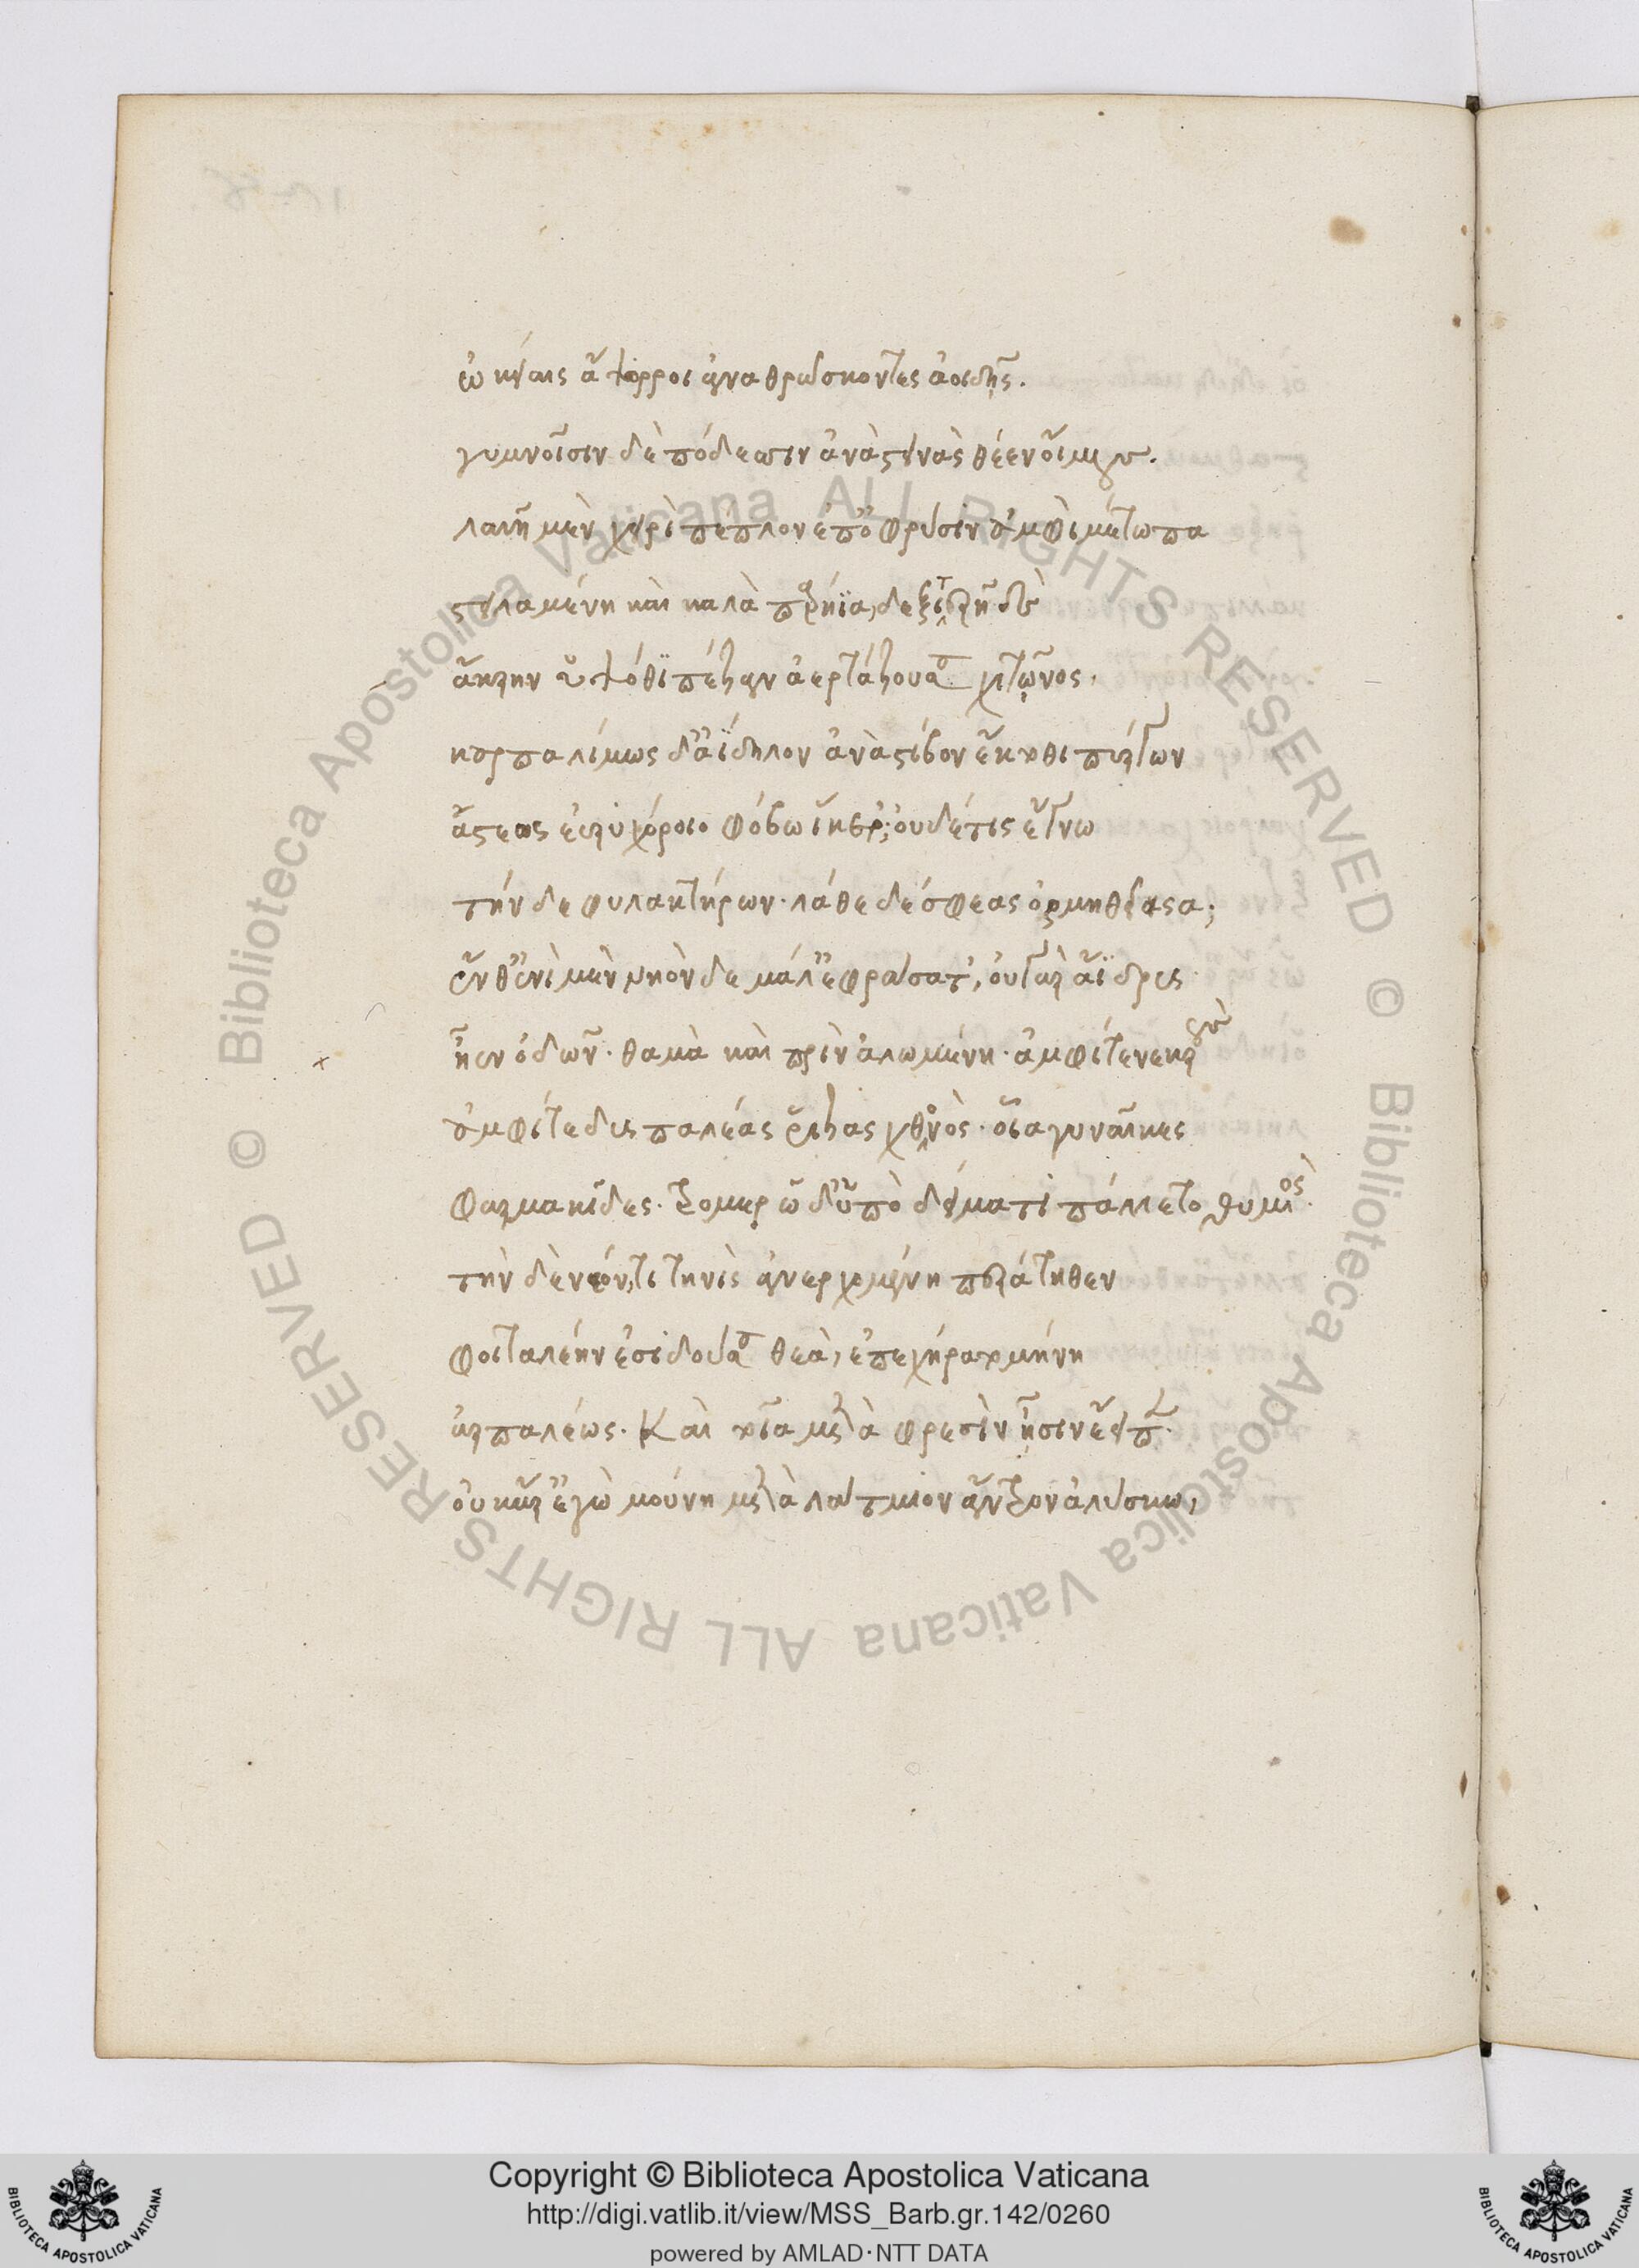 ὠκείαις ἄψορροι ἀναθρώσκοντες ἀοιδῆς.
γυμνοῖσιν δὲ πόδεσσιν ἀνὰ στεινὰς θέεν οἴμους.
λαιῆ μὲν χειρὶ πέπλον ἐπ' ὀφρύσιν ἀμφὶ μέτωπα
στειλαμένη καὶ καλὰ παρήϊα, δεξιτερῆ δὲ
ἄκρην ὑψόθι πέζαν ἀερτάζουσα χιτῶνος.
καρπαλίμως δ' ἀΐδηλον ἀνὰ στίβον ἔκτοθι πύργων
ἄστεος εὐρυχόροιο φόβω ἵκετ'; οὐδέ τις ἔγνω
τήνδε φυλακτήρων. λάθε δέ σφεας ὁρμηθεῖσα;
ἔνθεν ἴμεν νηὸν δὲ μάλ' ἐφράσατ', οὐ γὰρ ἄϊδρις
ἦεν ὁδῶν. θαμὰ καὶ πρὶν ἀλωμένη. ἀμφί τε νεκροὺς
ἀμφί τε δυσπαλέας ῥίζας χθονὸς. οἷα γυναῖκες
φαρμακίδες. τρομερῶ δ' ὑπὸ δείματι πάλλετο θυμὸς.
τὴν δὲ νέον, τιτηνὶς ἀνερχομένη περάτηθεν
φοιταλέην ἐσιδοῦσα θεὰ, ἐπεχήρατο μήνη
ἁρπαλέως. Καὶ τοῖα μετὰ φρεσὶν ᾗσιν ἔειπεν.
οὐκ ἄρ' ἐγὼ μούνη μετὰ λάτμιον ἄντρον ἀλύσκω,
Copyright © Biblioteca Apostolica Vaticana
http://digi.vatlib.it/view/MSS_Barb.gr.142/0260
powered by AMLAD·NTT DATA
© Biblioteca Apostolica Vaticana ALL RIGHTS RESERVED
© Biblioteca Apostolica Vaticana ALL RIGHTS RESERVED
BIBLIOTECA APOSTOLICA VATICANA
BIBLIOTECA APOSTOLICA VATICANA